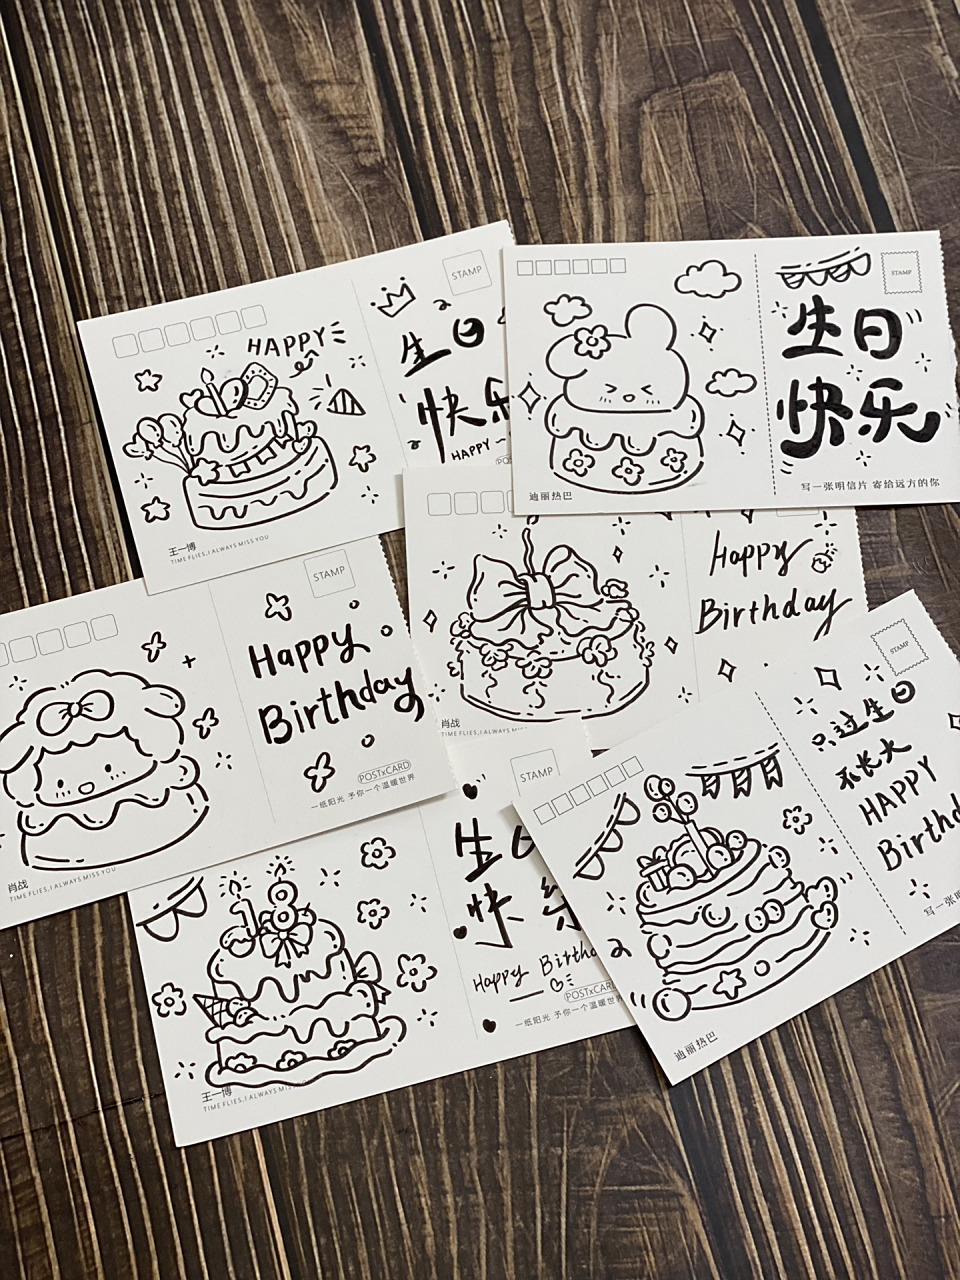 HAPPY
STAMP
生日
快乐
HAPPY
王一博
TIME FLIES, I ALWAYS MISS YOU
STAMP
生日
快乐
迪丽热巴
写一张明信片 寄给远方的你
Happy
Birthday
肖战
STAMP
Happy
Birthday
POSTxCARD
一纸阳光 予你一个温暖世界
肖战
TIME FLIES, I ALWAYS MISS YOU
STAMP
只过生日
不长大
HAPPY
Birthd
写一张明
迪丽热巴
STAMP
生日
快
Happy Birthd
POSTxCARD
一纸阳光 予你一个温暖世界
18
王一博
TIME FLIES, I ALWAYS MISS